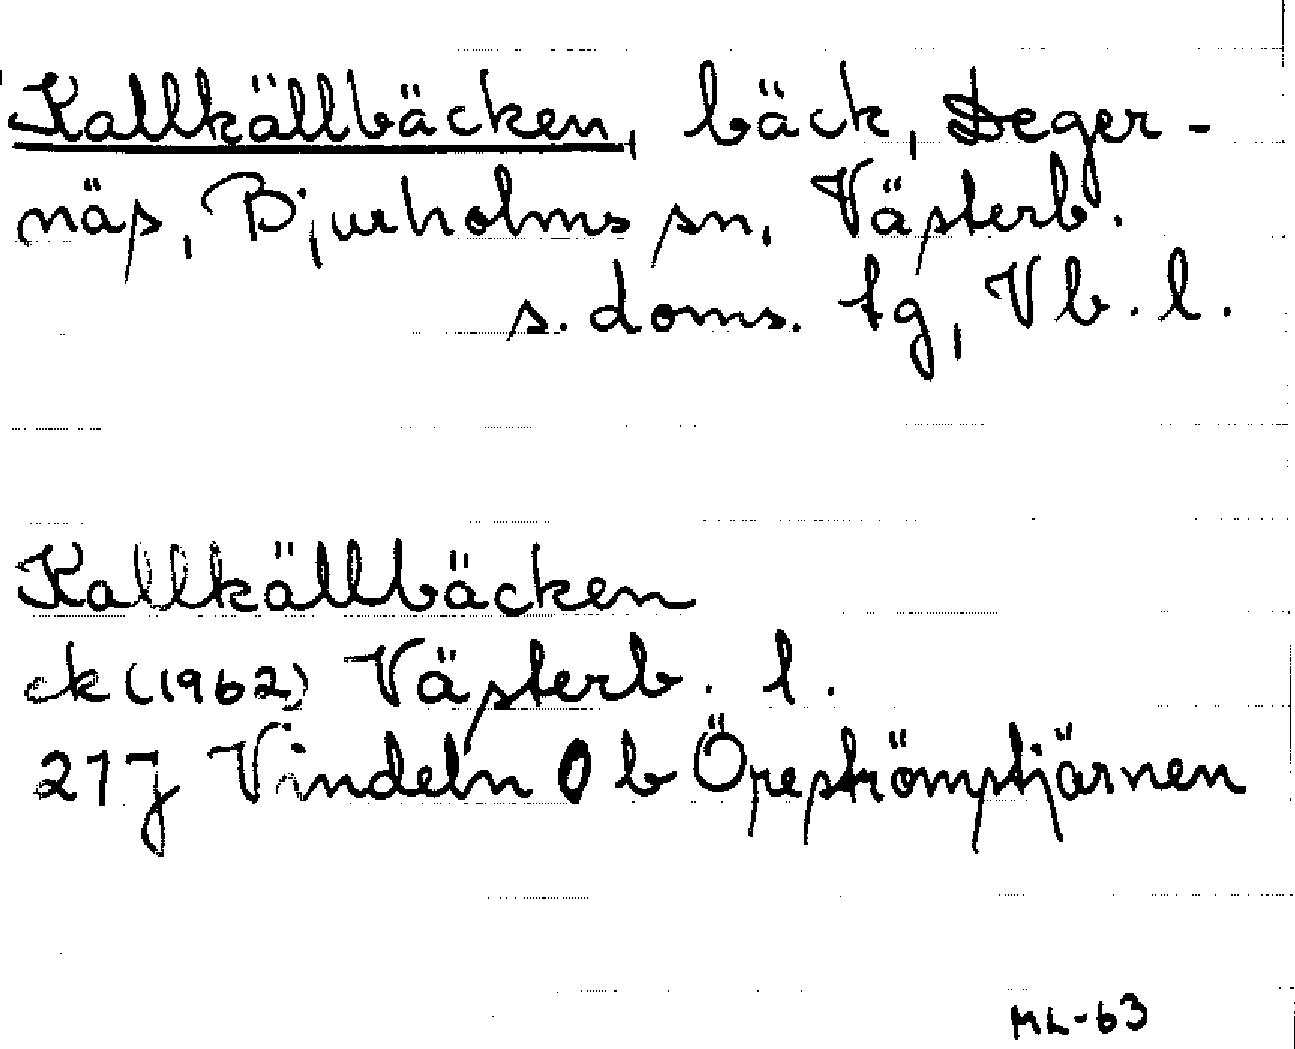 Kallkällbäcken, bäck, Deger-
näs, Bjurholms sn, Västerb.
s. doms. tg, Vb. l.
Kallkällbäcken
ek (1962) Västerb. l.
21J Vindeln 0 b Öreströmstjärnen
ML-63